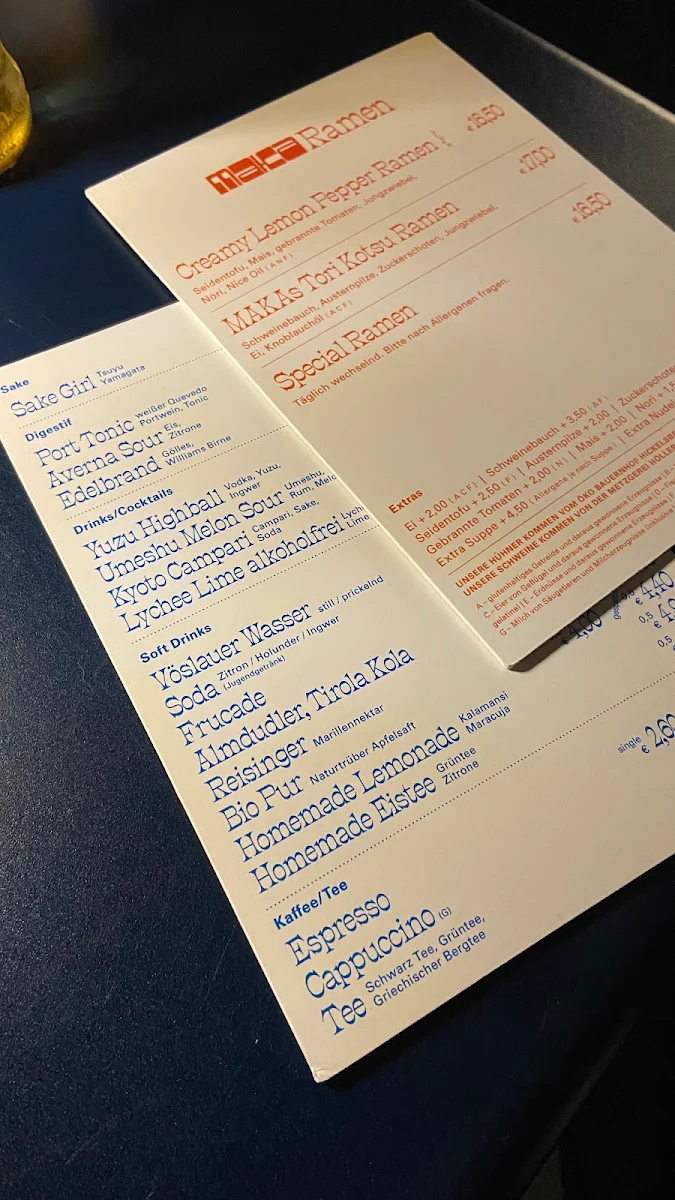 maka Ramen
Creamy Lemon Pepper Ramen € 18,50
Seidentofu, Mais, gebrannte Tomaten, Jungzwiebel,
Nori, Nice Oil (A N F)
MAKAs Tori Kotsu Ramen € 17,00
Schweinebauch, Austernpilze, Zuckerschoten, Jungzwiebel,
Ei, Knoblauchöl (A C F)
Special Ramen € 16,50
Täglich wechselnd. Bitte nach Allergenen fragen.
Extras
Ei + 2,00 (A C F) | Schweinebauch + 3,50 (A F)
Seidentofu + 2,50 (F) | Austernpilze + 2,00 | Zuckerschoten
Gebrannte Tomaten + 2,00 (N) | Mais + 2,00 | Nori + 1,5
Extra Suppe + 4,50 (Allergene je nach Suppe) | Extra Nudel
UNSERE HÜHNER KOMMEN VOM ÖKO BAUERNHOF
UNSERE SCHWEINE KOMMEN VON DER METZGEREI
A – glutenhaltiges Getreide und daraus gewonnene Erzeugnisse
C – Eier von Geflügel und daraus gewonnene Erzeugnisse
gelatine) | E – Erdnüsse und daraus gewonnene Erzeugnisse
G – Milch von Säugetieren und Milcherzeugnisse
Sake
Sake Girl Tsuyu
Yamagata
Digestif
Port Tonic weißer Quevedo
Portwein, Tonic
Averna Sour Eis,
Zitrone
Edelbrand Gölles,
Williams Birne
Drinks/Cocktails
Yuzu Highball Vodka, Yuzu,
Ingwer
Umeshu Melon Sour Umeshu,
Rum, Melo
Kyoto Campari Campari, Sake,
Soda
Lychee Lime alkoholfrei Lych
Lime
Soft Drinks
Vöslauer Wasser still / prickelnd
Soda Zitron / Holunder / Ingwer
(Jugendgetränk)
Frucade
Almdudler, Tirola Kola
Reisinger Marillennektar
Bio Pur Naturtrüber Apfelsaft
Homemade Lemonade Kalamansi
Maracuja
Homemade Eistee Grüntee
Zitrone
€ 4,00
0,5 € 4,40
0,5
0,5
Kaffee/Tee
single € 2,60
Espresso
Cappuccino (G)
Tee Schwarz Tee, Grüntee,
Griechischer Bergtee